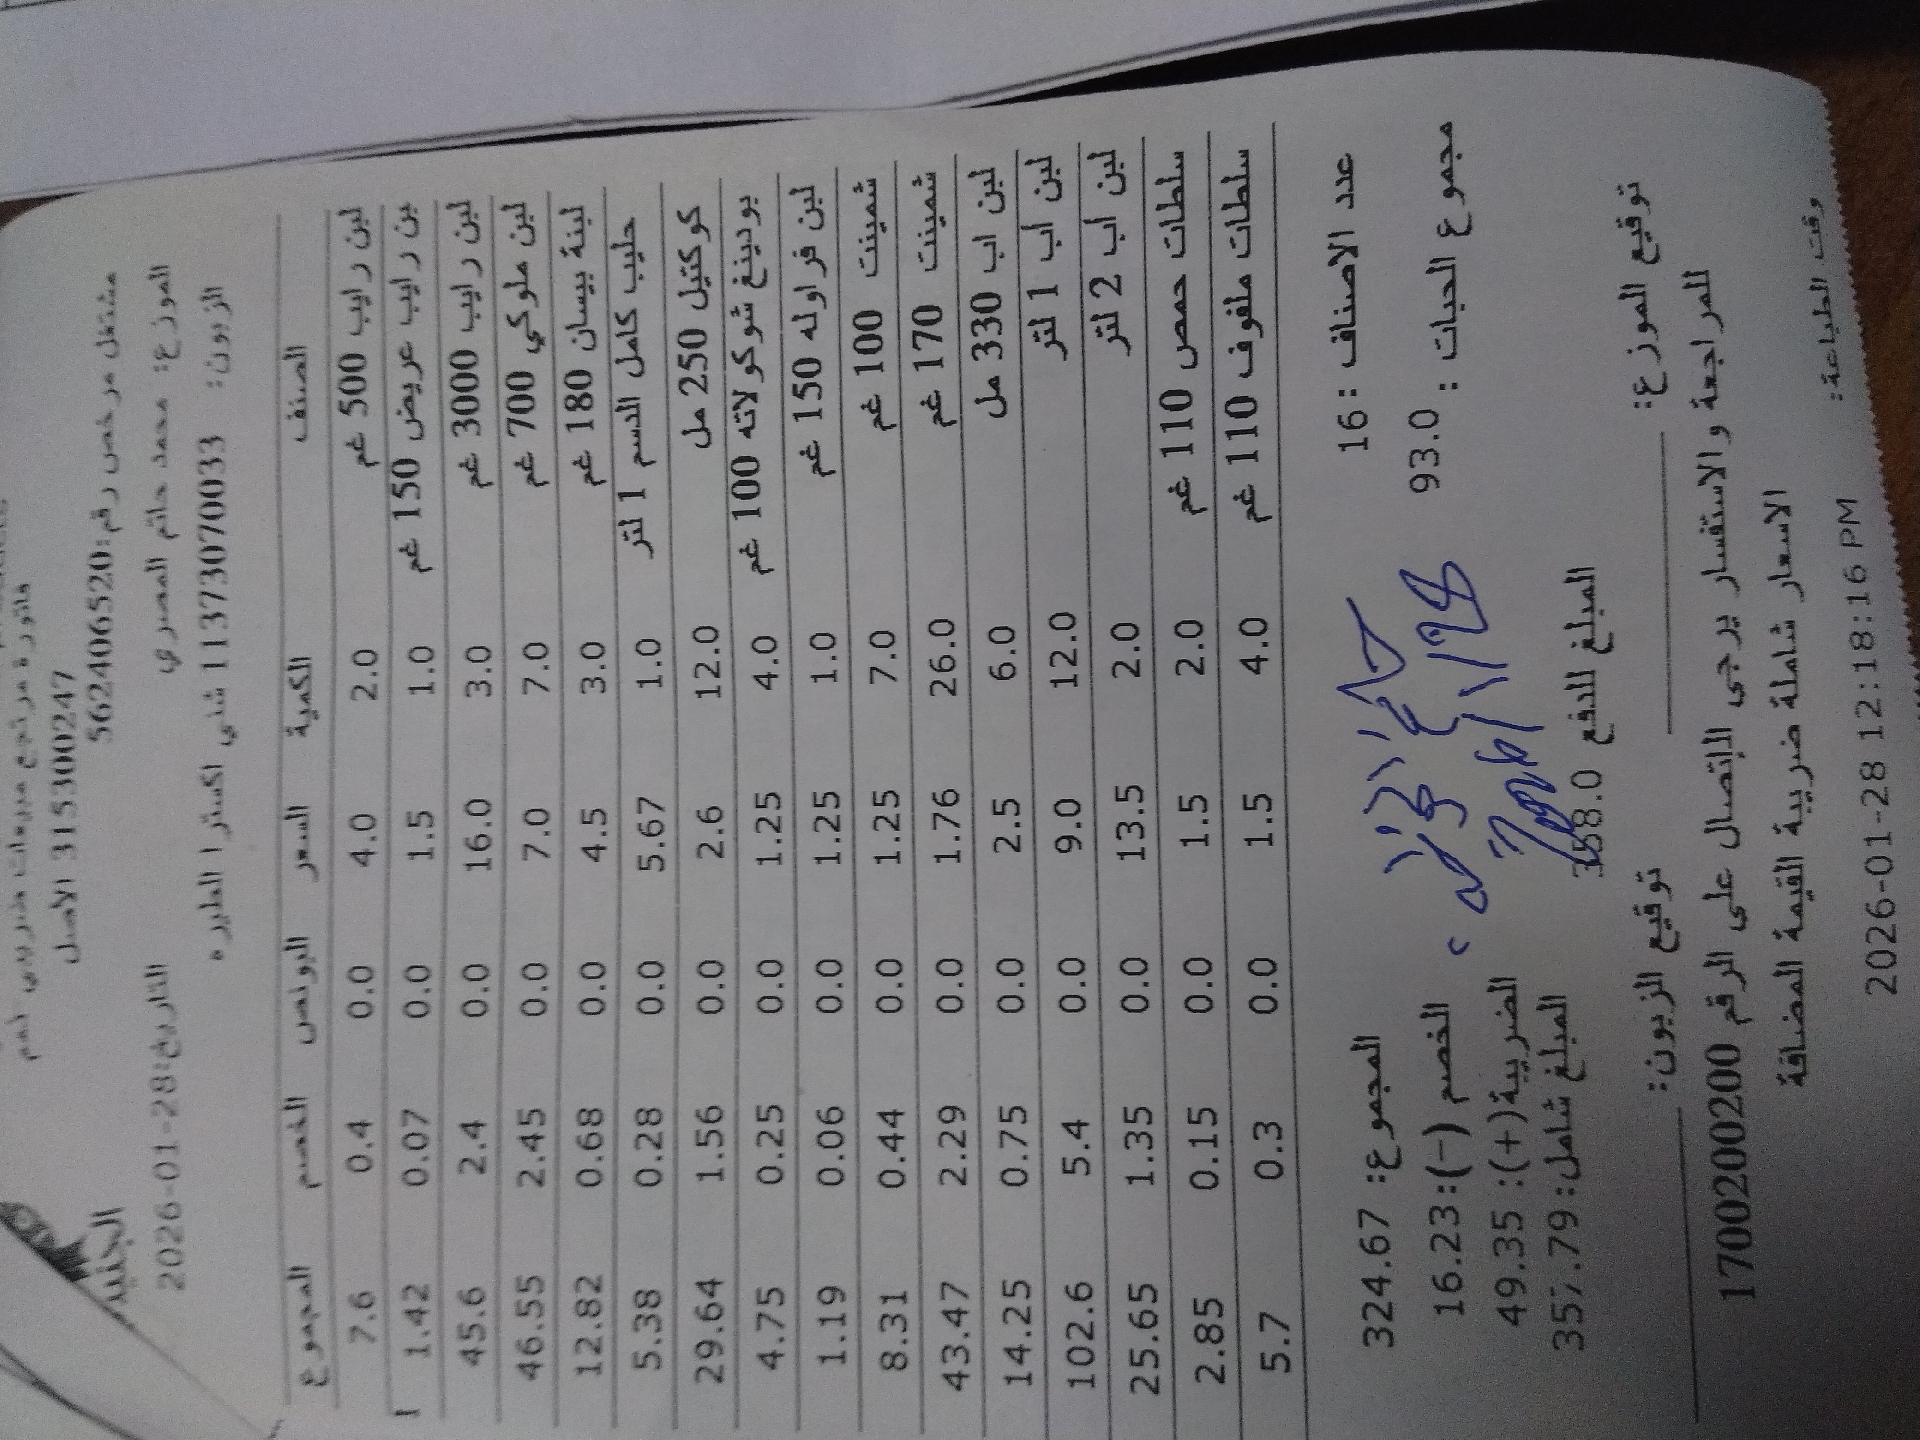 الجنيدي
فاتورة مرتجع مبيعات ضريبي نعم
315300247 الاصل
مشتغل مرخص رقم:562406520
الموزع: محمد حاتم المصري التاريخ:2026-01-28
الزبون: 11373070033 شني اكسترا الطيره
الصنف الكمية السعر البونص الخصم المجموع
لبن رايب 500 غم 2.0 4.0 0.0 0.4 7.6
بن رايب عريض 150 غم 1.0 1.5 0.0 0.07 1.42
لبن رايب 3000 غم 3.0 16.0 0.0 2.4 45.6
لبن ملوكي 700 غم 7.0 7.0 0.0 2.45 46.55
لبنة بيسان 180 غم 3.0 4.5 0.0 0.68 12.82
حليب كامل الدسم 1 لتر 1.0 5.67 0.0 0.28 5.38
كوكتيل 250 مل 12.0 2.6 0.0 1.56 29.64
بودينغ شوكولاته 100 غم 4.0 1.25 0.0 0.25 4.75
لبن فراوله 150 غم 1.0 1.25 0.0 0.06 1.19
شمينت 100 غم 7.0 1.25 0.0 0.44 8.31
شمينت 170 غم 26.0 1.76 0.0 2.29 43.47
لبن اب 330 مل 6.0 2.5 0.0 0.75 14.25
لبن اب 1 لتر 12.0 9.0 0.0 5.4 102.6
لبن اب 2 لتر 2.0 13.5 0.0 1.35 25.65
سلطات حمص 110 غم 2.0 1.5 0.0 0.15 2.85
سلطات ملفوف 110 غم 4.0 1.5 0.0 0.3 5.7
عدد الاصناف : 16 المجموع: 324.67
مجموع الحبات : 93.0 الخصم (-):16.23
الضريبة(+): 49.35
المبلغ شامل: 357.79
المبلغ للدفع 358.0
توقيع الموزع: توقيع الزبون:
للمراجعة والاستفسار يرجى الإتصال على الرقم 1700200200
الاسعار شاملة ضريبة القيمة المضافة
وقت الطباعة: 2026-01-28 12:18:16 PM